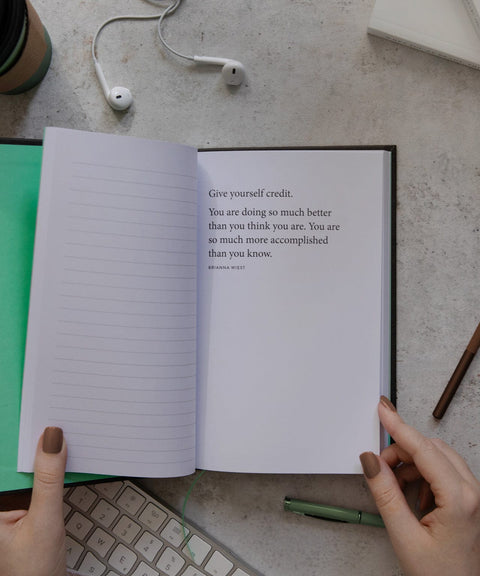 Give yourself credit.
You are doing so much better
than you think you are. You are
so much more accomplished
than you know.
BRIANNA WIEST